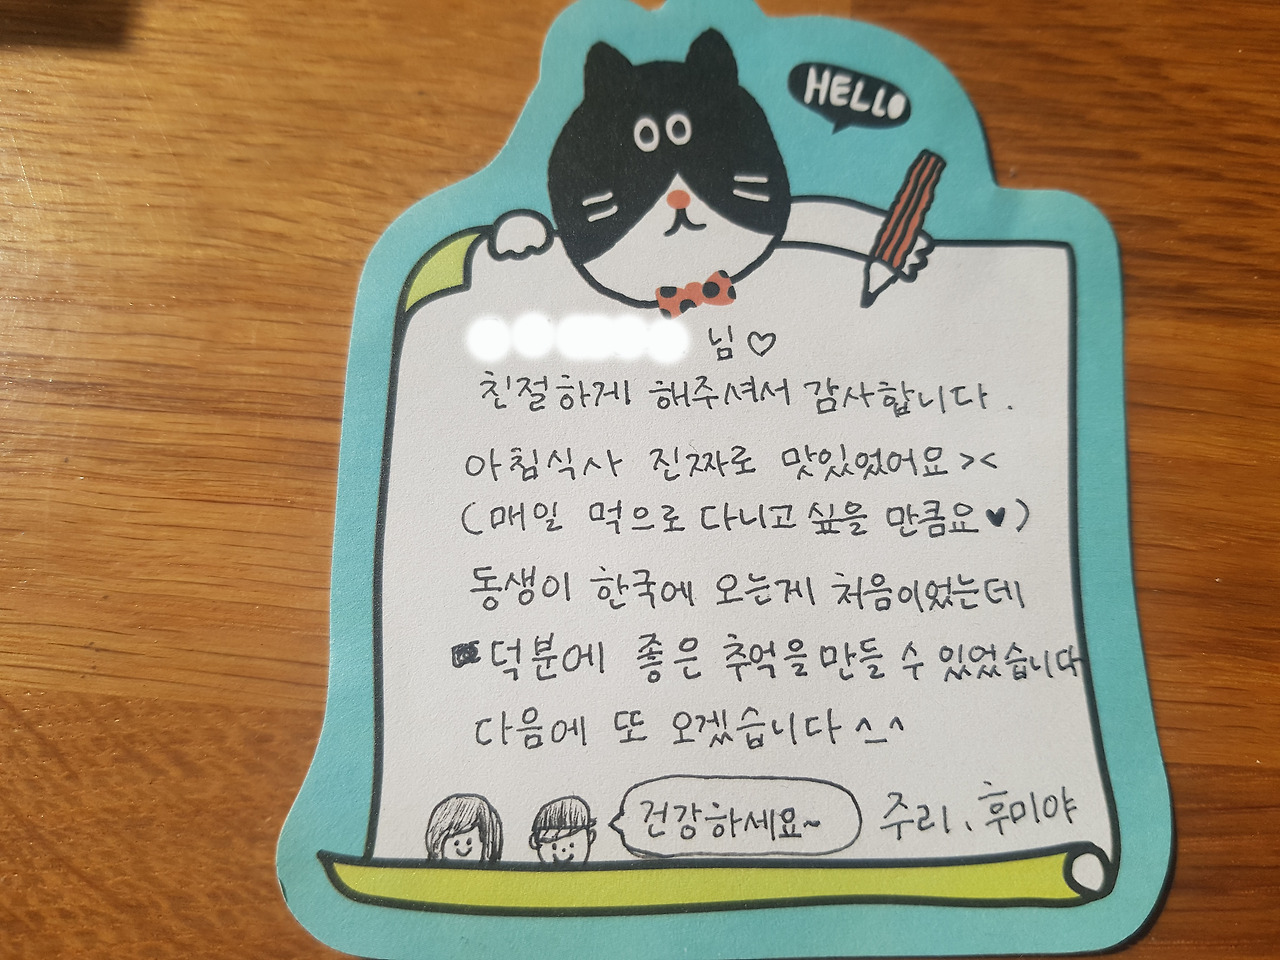 HELLO
님♡
친절하게 해주셔서 감사합니다.
아침식사 진짜로 맛있었어요><
(매일 먹으로 다니고 싶을 만큼요♥)
동생이 한국에 오는게 처음이었는데
덕분에 좋은 추억을 만들 수 있었습니다
다음에 또 오겠습니다 ^_^
건강하세요~ 주리、후미야